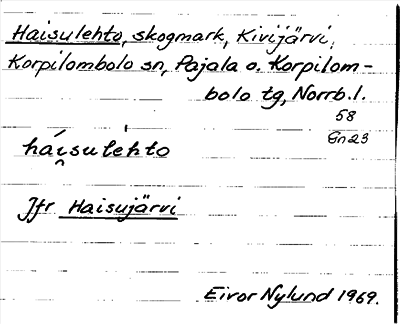 Haisulehto, skogmark, Kivijärvi,
Korpilombolo sn, Pajala o. Korpilom-
bolo tg, Norrb.l.
58
Gn23
háisulehto
Jfr Haisujärvi
Eivor Nylund 1969.